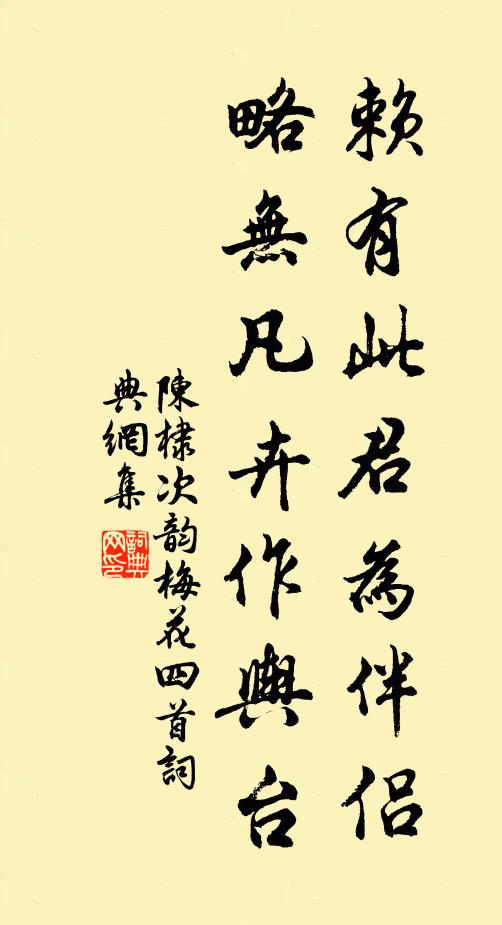 赖有此君為伴侣
略無凡卉作輿台
陳棣次韵梅花四首詞
典網集
詞典网印